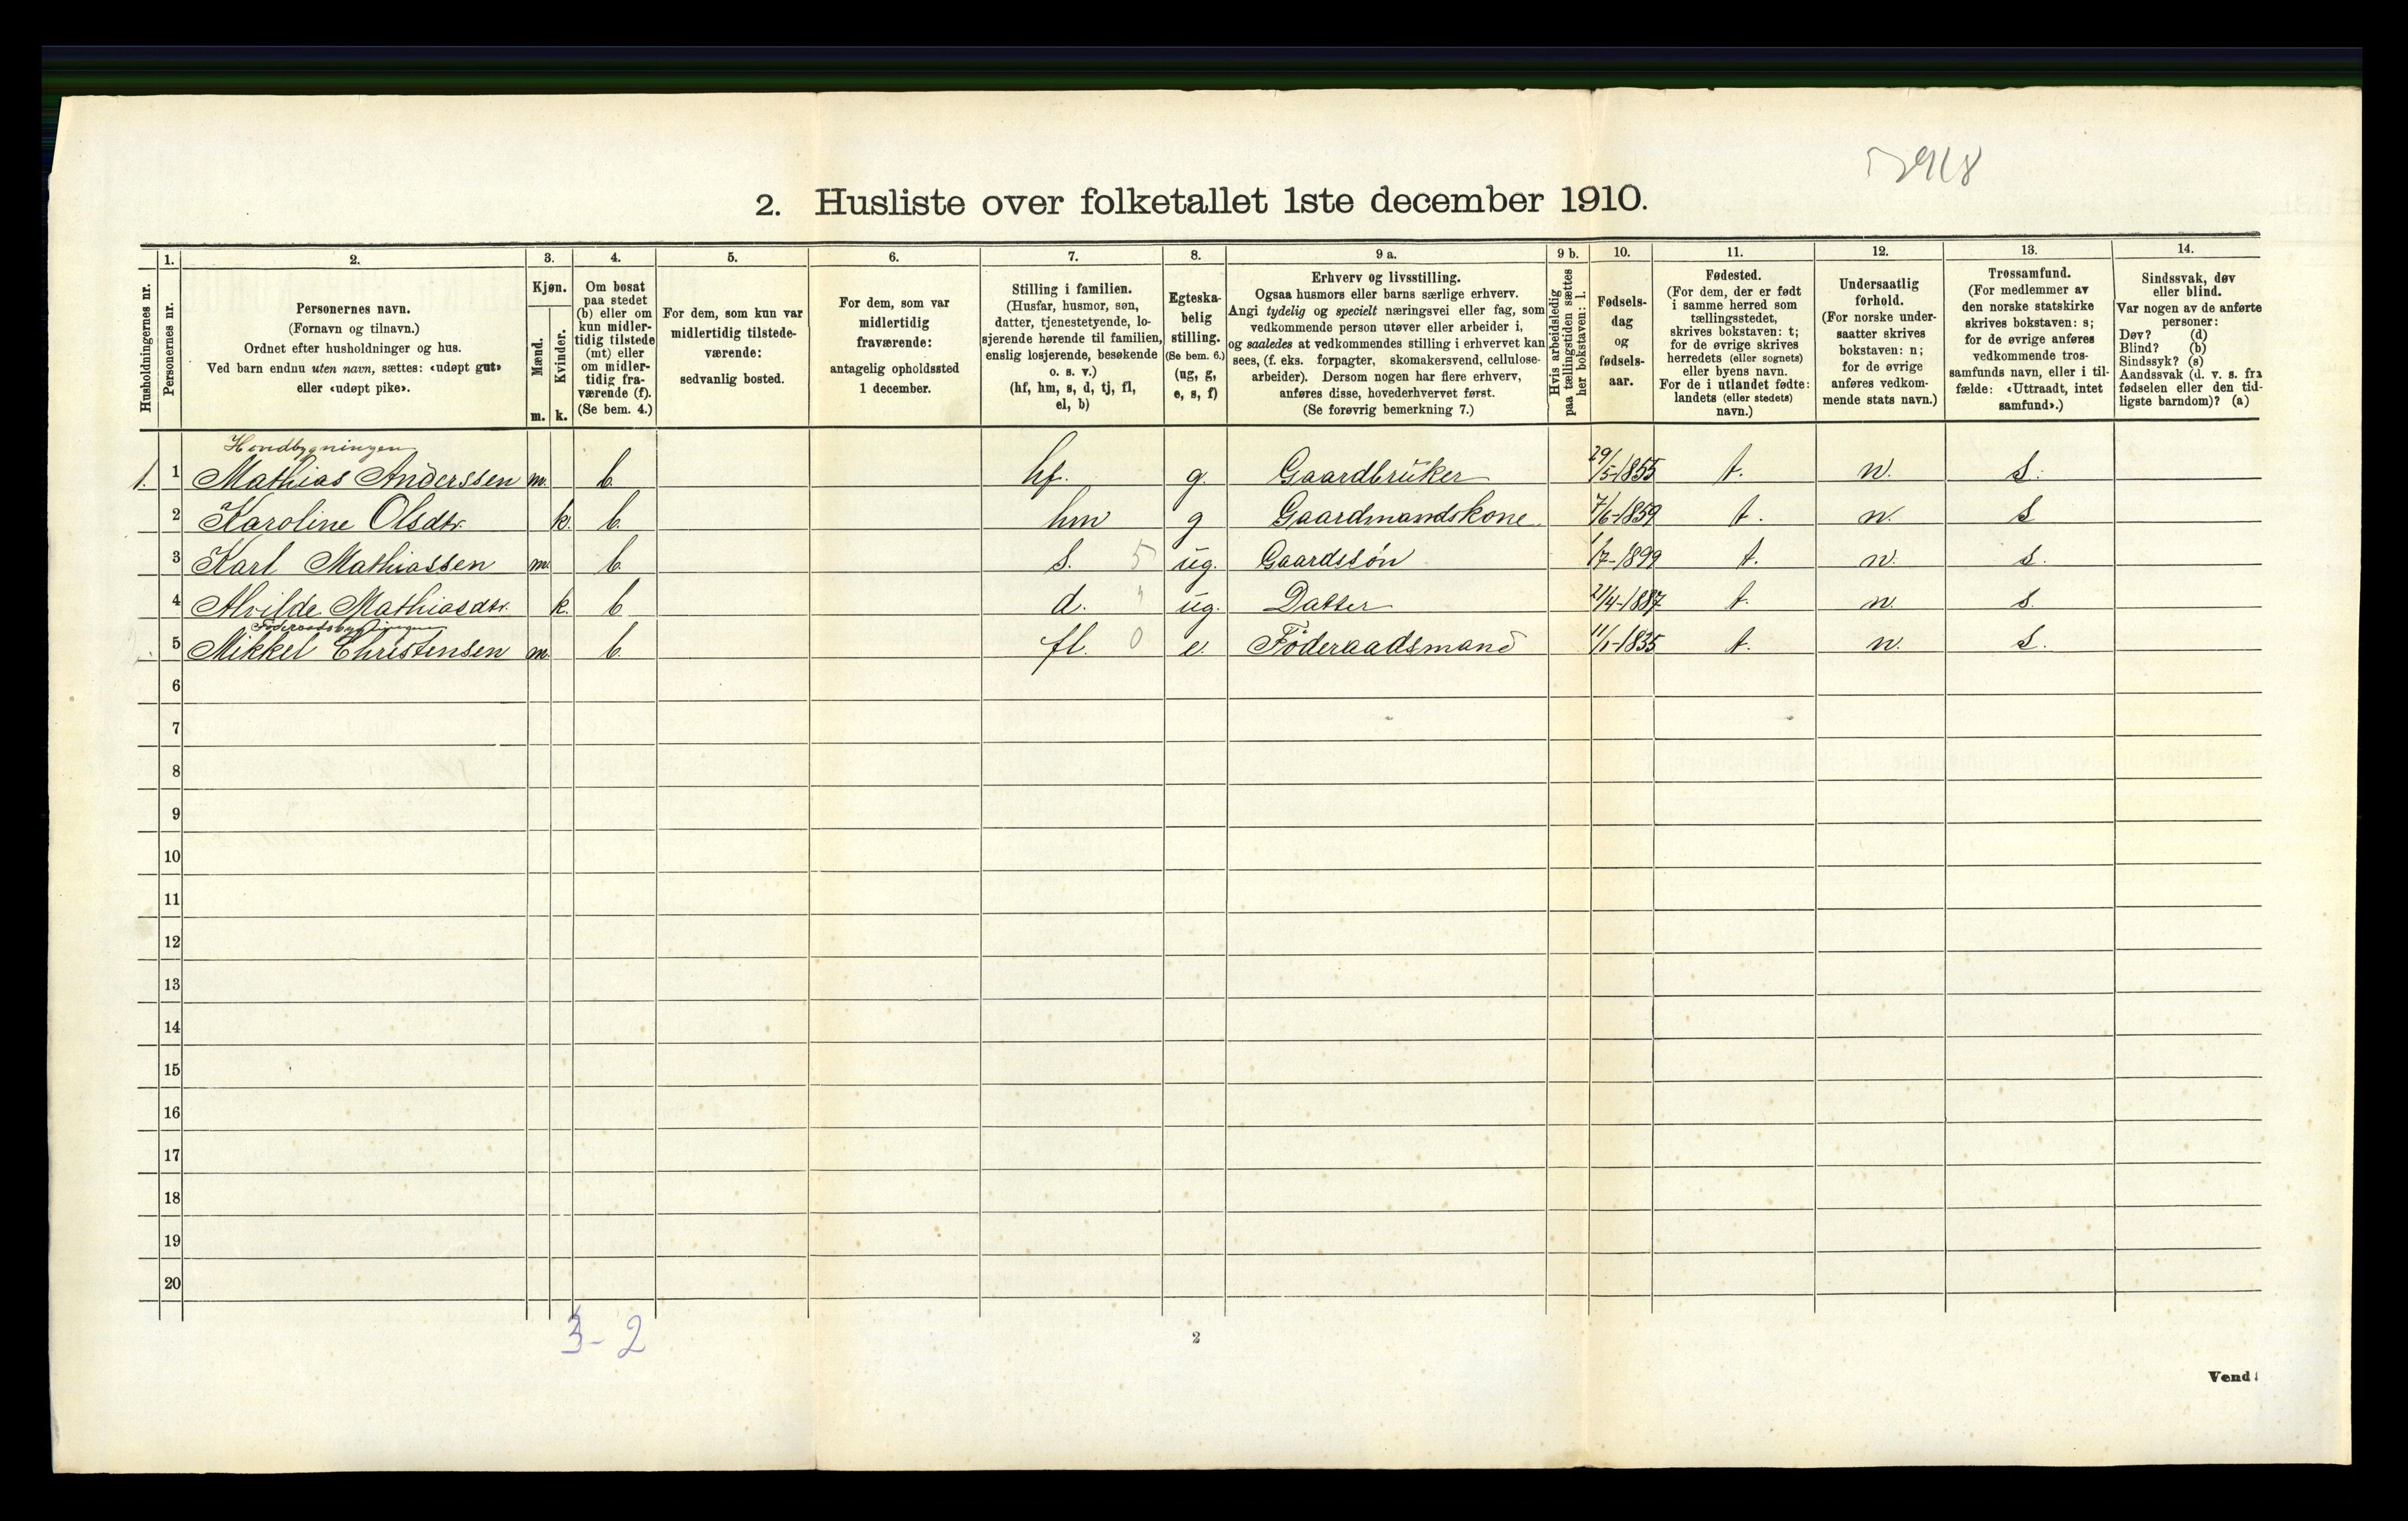 2. Husliste over folketallet 1ste december 1910.
Husholdningernes nr.
1.
Personernes nr.
2.
Personernes navn.
(Fornavn og tilnavn.)
Ordnet efter husholdninger og hus.
Ved barn endnu uten navn, sættes: «udøpt gut»
eller «udøpt pike».
3.
Kjøn.
Mænd.
m.
Kvinder.
k.
4.
Om bosat
paa stedet
(b) eller om
kun midler-
tidig tilstede
(mt) eller
om midler-
tidig fra-
værende (f).
(Se bem. 4.)
5.
For dem, som kun var
midlertidig tilstede-
værende:
sedvanlig bosted.
6.
For dem, som var
midlertidig
fraværende:
antagelig opholdssted
1 december.
7.
Stilling i familien.
(Husfar, husmor, søn,
datter, tjenestetyende, lo-
sjerende hørende til familien,
enslig losjerende, besøkende
o. s. v.)
(hf, hm, s, d, tj, fl,
el, b)
8.
Egteska-
belig
stilling.
(Se bem. 6.)
(ug, g,
e, s, f)
9 a.
Erhverv og livsstilling.
Ogsaa husmors eller barns særlige erhverv.
Angi tydelig og specielt næringsvei eller fag, som
vedkommende person utøver eller arbeider i,
og saaledes at vedkommendes stilling i erhvervet kan
sees, (f. eks. forpagter, skomakersvend, cellulose-
arbeider). Dersom nogen har flere erhverv,
anføres disse, hovederhvervet først.
(Se forøvrig bemerkning 7.)
9 b.
Hvis arbeidsledig
paa tællingstiden sættes
her bokstaven: l.
10.
Fødsels-
dag
og
fødsels-
aar.
11.
Fødested.
(For dem, der er født
i samme herred som
tællingsstedet,
skrives bokstaven: t;
for de øvrige skrives
herredets (eller sognets)
eller byens navn.
For de i utlandet fødte:
landets (eller stedets)
navn.)
12.
Undersaatlig
forhold.
(For norske under-
saatter skrives
bokstaven: n;
for de øvrige
anføres vedkom-
mende stats navn.)
13.
Trossamfund.
(For medlemmer av
den norske statskirke
skrives bokstaven: s;
for de øvrige anføres
vedkommende tros-
samfunds navn, eller i til-
fælde: «Uttraadt, intet
samfund».)
14.
Sindssvak, døv
eller blind.
Var nogen av de anførte
personer:
Døv? (d)
Blind? (b)
Sindssyk? (s)
Aandssvak (d. v. s. fra
fødselen eller den tid-
ligste barndom)? (a)
Hovedbygningen
1. 1 Mathias Anderssen m. b. hf. g. Gaardbruker 29/5-1855 t. n. s.
2 Karoline Olsdtr. k. b. hm g Gaardmandskone 7/6-1859 t. n. s
3 Karl Mathiassen m. b. s. 5 ug. Gaardssøn 1/7-1899 t. n. s.
4 Alvilde Mathiasdtr. k. b d. " ug. Datter 21/4-1887 t. n. s.
Føderaadsbygningen
5 Mikkel Christensen m. b. fl. 0 e. Føderaadsmand 11/1-1835 t. n. s.
6
7
8
9
10
11
12
13
14
15
16
17
18
19
20
3-2
2
Vend!